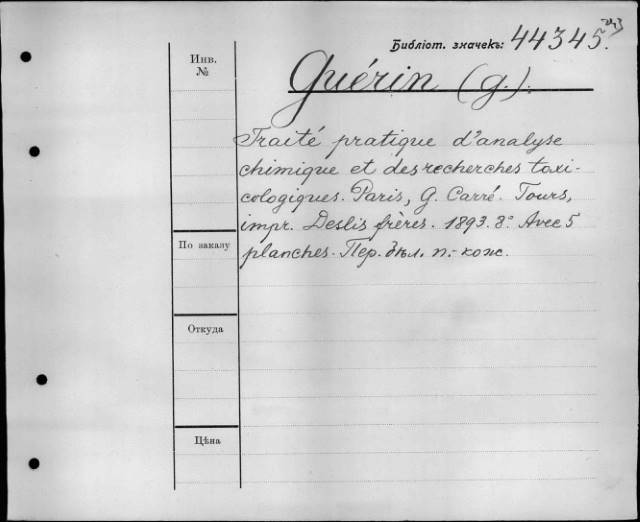 Библіот. значекъ: 44345.
Инв.
№
Guérin (G.).
Traité pratique d'analyse
chimique et des recherches toxi-
cologiques. Paris, G. Carré. Tours,
impr. Deslis frères. 1893. 8º. Avec 5
planches. Пер. бѣл. п.-кож.
По заказу
Откуда
Цѣна